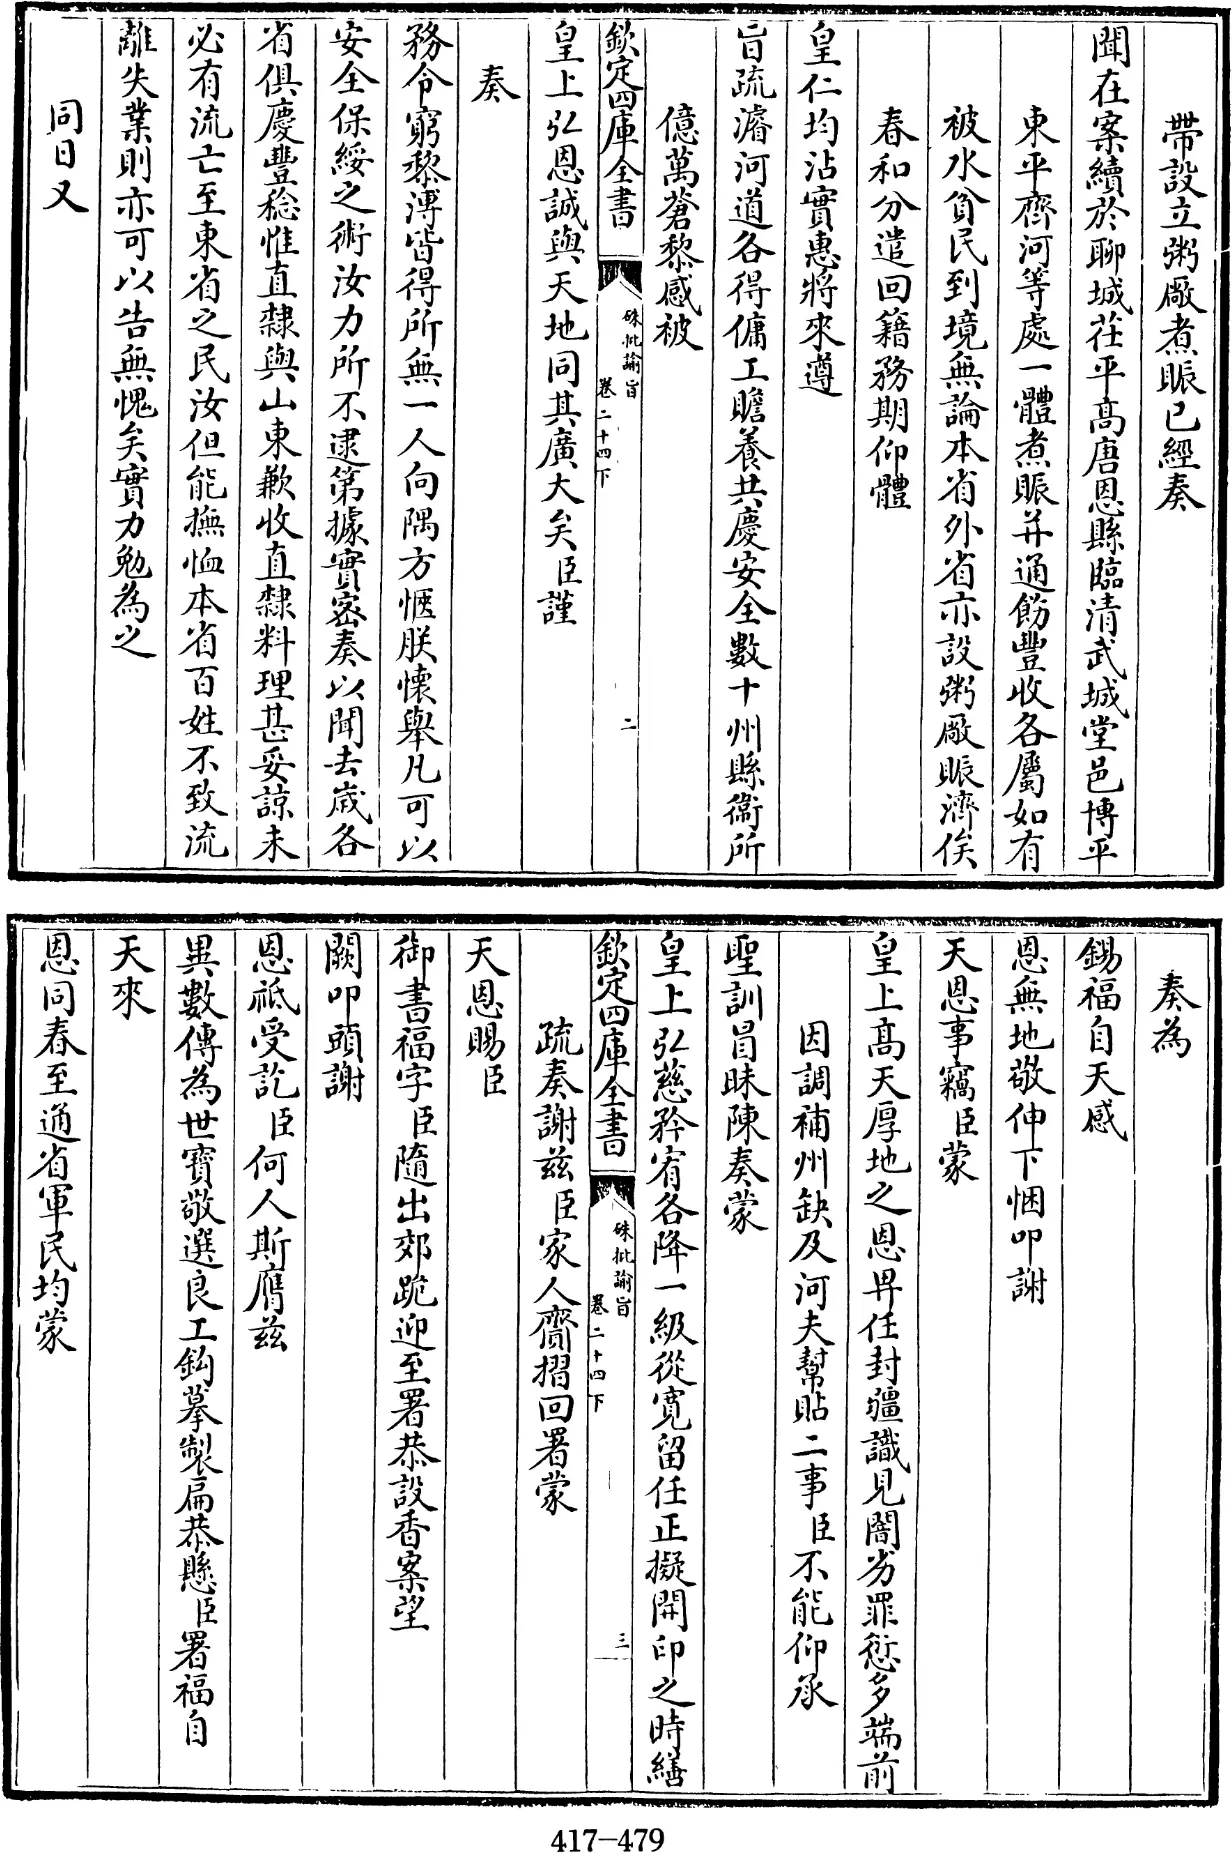 帶設立粥厰煮賑已經奏
聞在案續於聊城茌平髙唐恩縣臨清武城堂邑博平
東平齊河等處一體煮賑并通飭豐收各屬如有
被水貧民到境無論本省外省亦設粥厰賑濟俟
春和分遣回籍務期仰體
皇仁均沾實惠將來遵
旨疏濬河道各得傭工贍養共慶安全數十州縣衞所
億萬蒼黎感被
欽定四庫全書
硃批諭旨
卷二十四下
二
皇上弘恩誠與天地同其廣大矣臣謹
奏
務令窮黎溥皆得所無一人向隅方愜朕懷舉凡可以
安全保綏之術汝力所不逮第據實密奏以聞去歲各
省俱慶豐稔惟直隸與山東歉收直隸料理甚妥諒未
必有流亡至東省之民汝但能撫恤本省百姓不致流
離失業則亦可以告無愧矣實力勉為之
同日又
奏為
錫福自天感
恩無地敬伸下悃叩謝
天恩事竊臣蒙
皇上髙天厚地之恩畀任封疆識見闇劣罪愆多端前
因調補州缺及河夫幫貼二事臣不能仰承
聖訓冒昧陳奏蒙
皇上弘慈矜宥各降一級從寛留任正擬開印之時繕
欽定四庫全書
硃批諭旨
卷二十四下
三
疏奏謝兹臣家人齎摺回署蒙
天恩賜臣
御書福字臣隨出郊跪迎至署恭設香案望
闕叩頭謝
恩祗受訖臣何人斯膺兹
異數傳為世寳敬選良工鈎摹製扁恭懸臣署福自
天來
恩同春至通省軍民均蒙
417-479